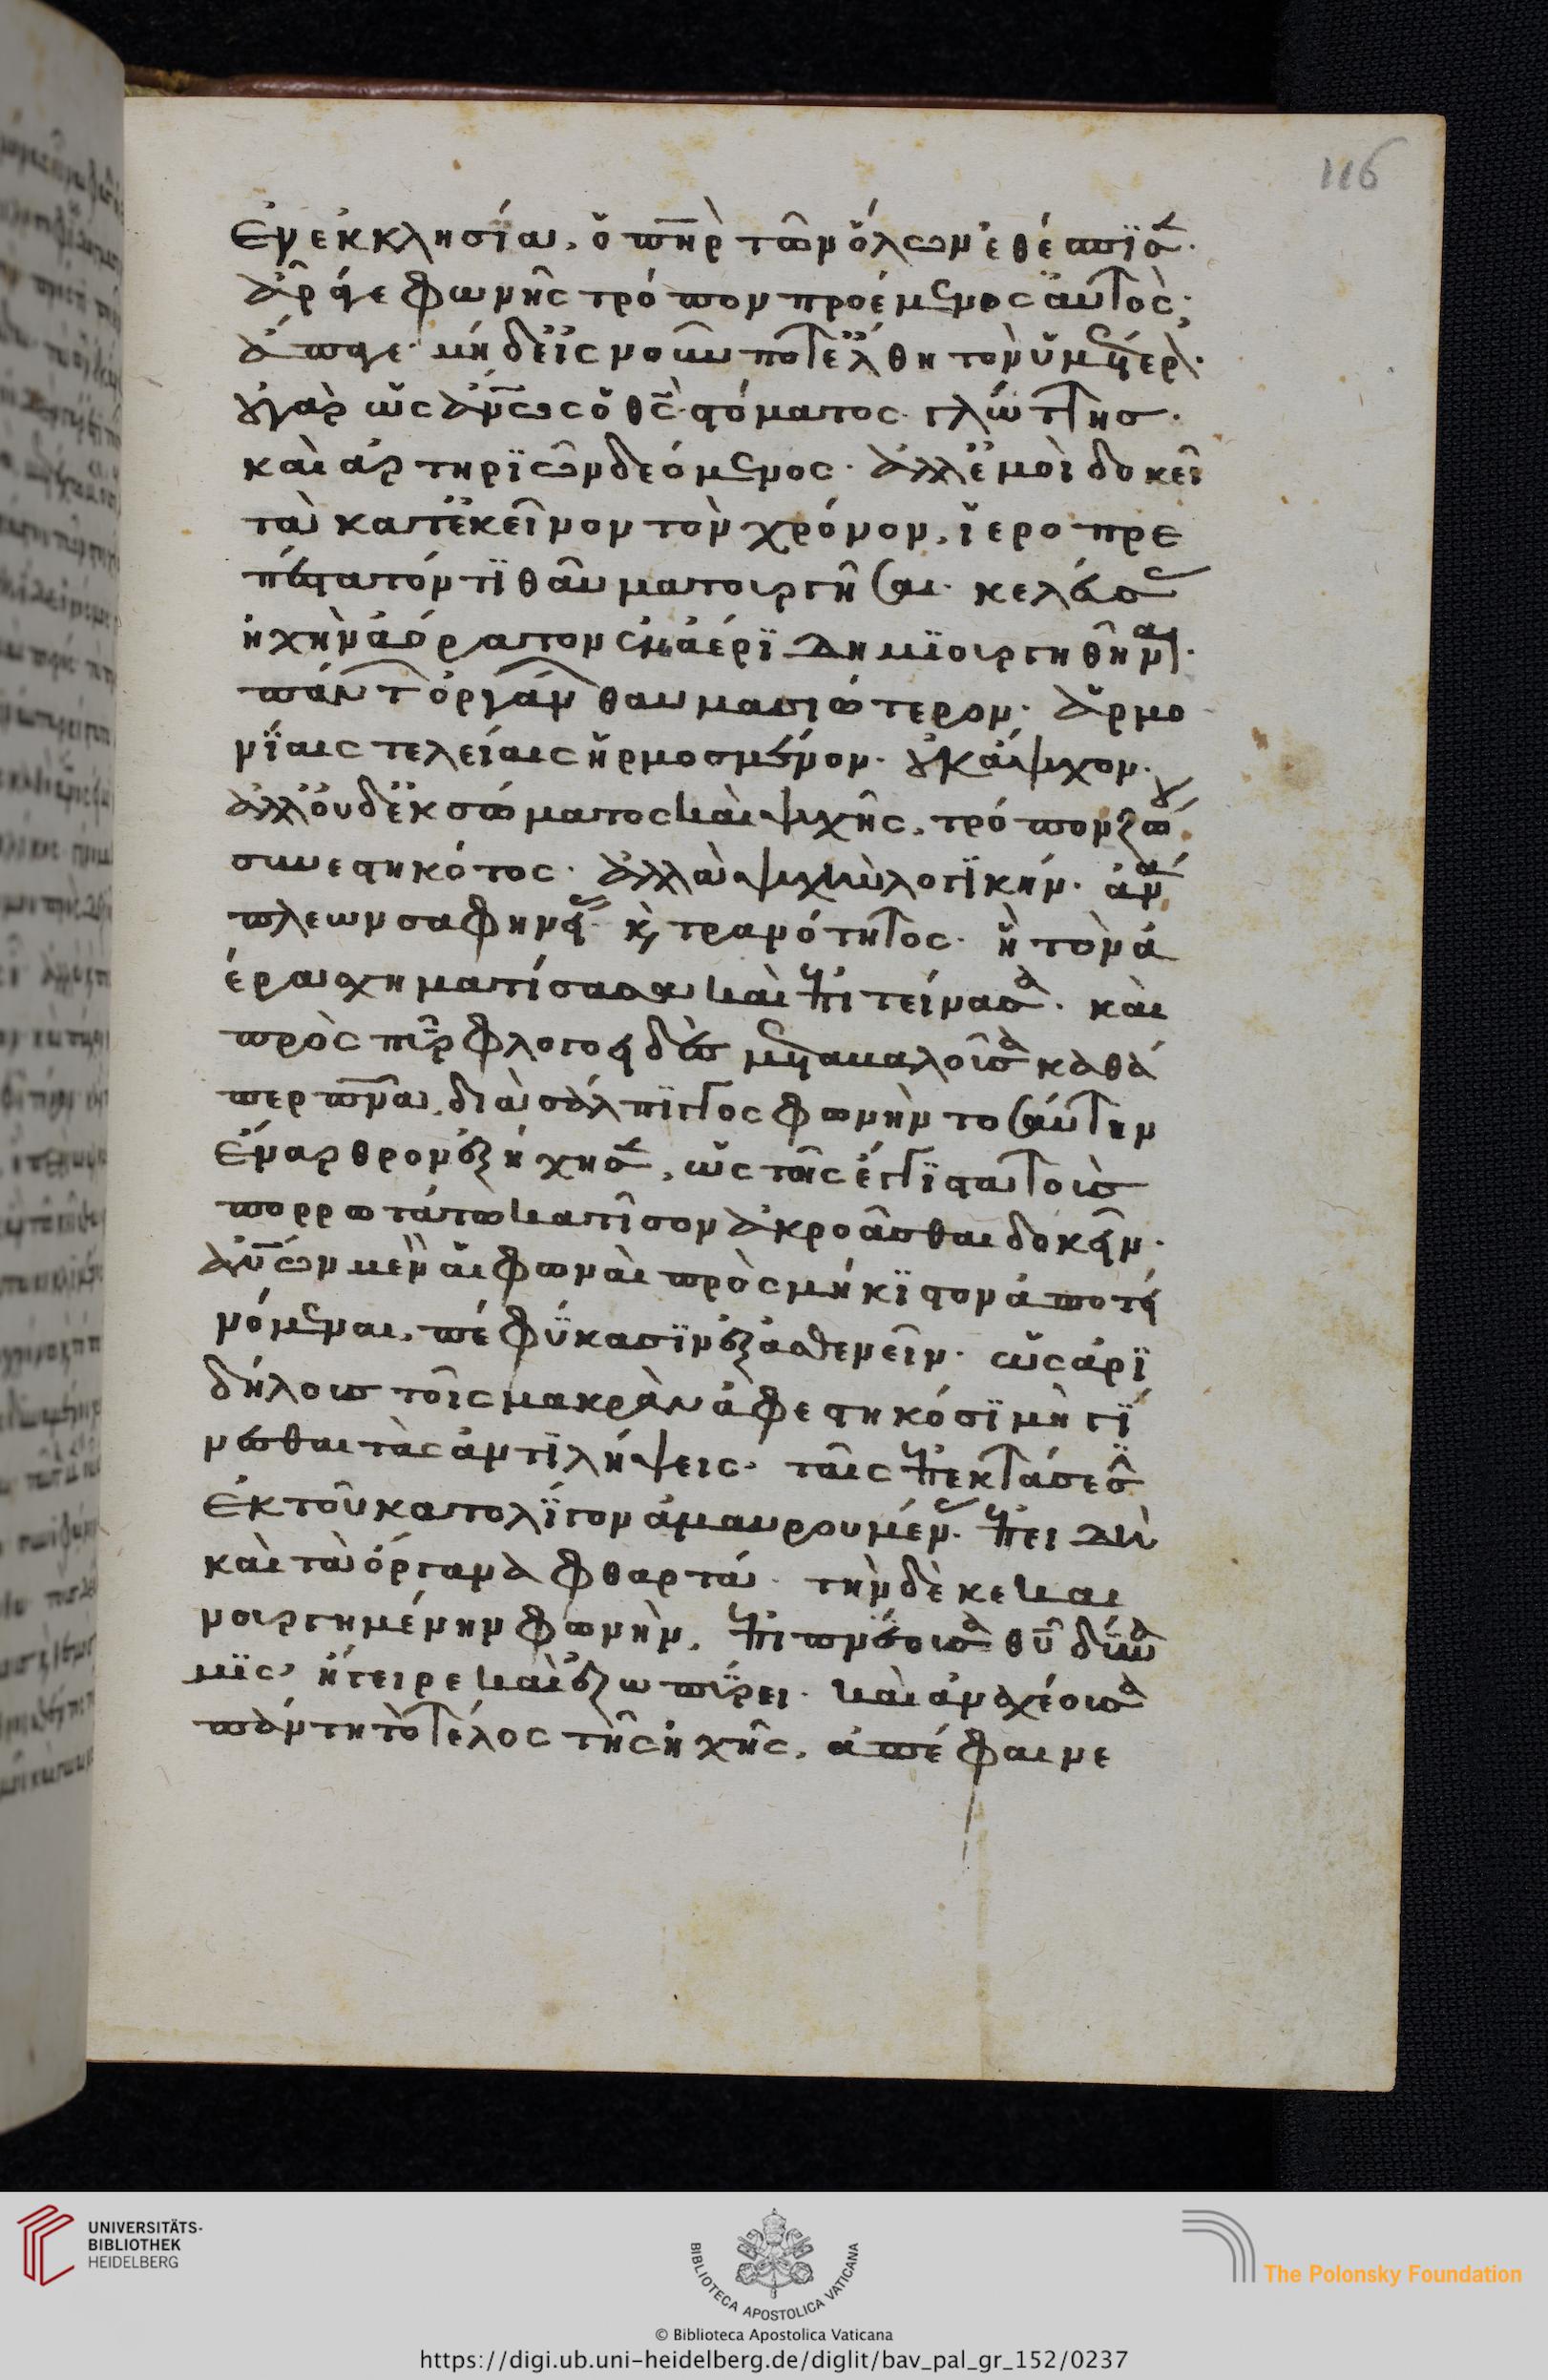 ἐν ἐκκλησίαι, ὁ πηρ τῶν ὅλων ἐθέσπισ·
ἆρά γε φωνῆς τρόπον προέμενος αὐτός;
ἄπαγε· μηδεὶς νοῦν ποτ ἔλθη τὸν ἡμέτερ·
οὐ γὰρ ὡς ἀνος ὁ θς στόματος γλώττης·
καὶ ἀρτηριῶν δεόμενος· ἀλλ ἐμοὶ δοκεῖ
τὰ κατ ἐκεῖνον τὸν χρόνον, ἱεροπρε
πέστατόν τι θαυματουργῆσαι· κελεύσ
ἠχὴν ἀόρατον ἐν ἀέρι δημιουργηθῆναι·
πάντ ὀργάν θαυμασιώτερον· ἁρμο
νίαις τελείαις ἡρμοσμένον· οὐκ ἄψυχον·
ἀλλ οὐδ ἐκ σώματος καὶ ψυχῆς, τρόπον ζώου
συνεστηκότος· ἀλλὰ ψυχὴν λογικήν· ἀνά
πλεων σαφηνείας· καὶ τρανότητος· ἣ τὸν ἀ
έρα σχηματίσασα καὶ ἐπιτείνασα· καὶ
πρὸς πῦρ φλογοειδὲς μεταβαλοῦσα καθά
περ πνα, διὰ σάλπιγγος φωνὴν τοσαύτην
ἔναρθρον ἐξήχησ, ὡς τοῖς ἔγγιστα τοὺς
πορρωτάτω κατ ἶσον ἀκροᾶσθαι δοκεῖν·
ἀνων μὲν αἱ φωναὶ πρὸς μήκιστον ἀποτει
νόμεναι, πεφύκασιν ἐξασθενεῖν· ὡς ἀρι
δήλους τοῖς μακρὰν ἀφεστηκόσι μὴ γί
νεσθαι τὰς ἀντιλήψεις· ταῖς ἐπεκτάσεσ
ἐκ τοῦ κατ ὀλίγον ἀμαυρουμέν· ἐπειδὴ
καὶ τὰ ὄργανα φθαρτά· τὴν δὲ κεκαι
νουργημένην φωνὴν, ἐπιπνέουσα θυ δύνα
μις ἤγειρε καὶ ἐζωπύρει· καὶ ἀναχέουσα
πάντη τὸ τέλος τῆς ἠχῆς, ἀπέφαινε
116
UNIVERSITÄTS-
BIBLIOTHEK
HEIDELBERG
BIBLIOTECA APOSTOLICA VATICANA
The Polonsky Foundation
© Biblioteca Apostolica Vaticana
https://digi.ub.uni-heidelberg.de/diglit/bav_pal_gr_152/0237